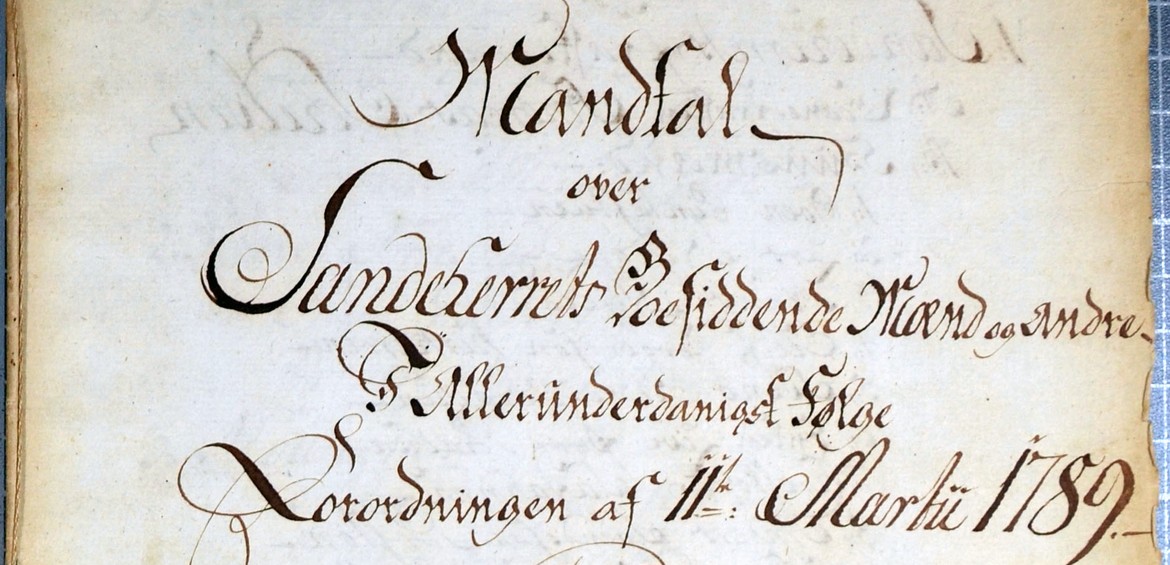 Mandtal
over
Sandeherrets Boesiddende Mænd og andre
I Allerunderdanigst Følge
Forordningen af 11te Martii 1789.